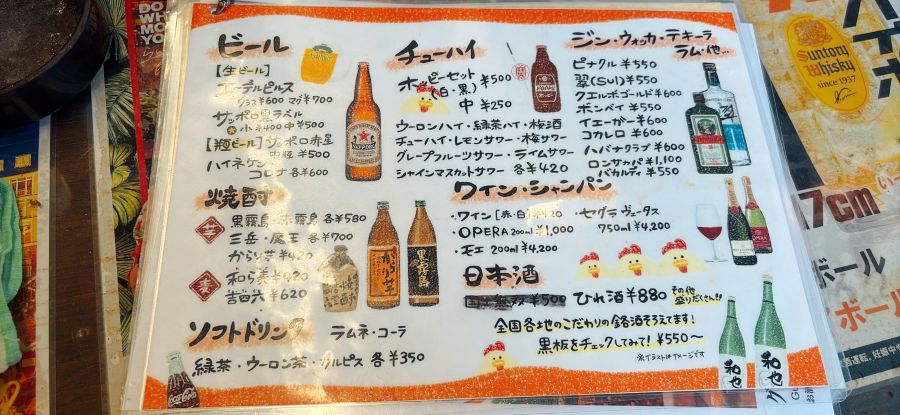 ビール
【生ビール】
エーデルピルス
グラス¥600 マグ¥700
サッポロ黒ラベル
小¥400 中¥500
【瓶ビール】サッポロ赤星
中瓶 ¥500
ハイネケン
コロナ 各¥600
焼酎
芋
黒霧島・赤霧島 各¥580
三岳・魔王 各¥700
からり芋 ¥420
麦
和ら麦 ¥420
吉四六 ¥620
ソフトドリンク
ラムネ・コーラ
緑茶・ウーロン茶・カルピス 各¥350
Coca-Cola
チューハイ
ホッピーセット ¥500
(白・黒)
中 ¥250
ウーロンハイ・緑茶ハイ・梅酒
チューハイ・レモンサワー・梅サワー
グレープフルーツサワー・ライムサワー
シャインマスカットサワー 各¥420
ジン・ウォッカ・テキーラ
ラム・他...
ピナクル ¥550
翠(SUI) ¥550
クエルボゴールド ¥600
ボンベイ ¥550
イエーガー ¥600
コカレロ ¥600
ハバナクラブ ¥600
ロンサカパ ¥1,100
バカルディ ¥550
ワイン・シャンパン
・ワイン[赤・白] ¥420
・OPERA 200ml ¥1,000
・モエ 200ml ¥4,200
・セグラ ヴューダス
750ml ¥4,200
OPERA
日本酒
国士無双 ¥500
ひれ酒 ¥880
その他
盛りだくさん!!
全国各地のこだわりの銘酒そろえてます!
黒板をチェックしてみて! ¥550〜
※イラストはイメージです
和也
和也
黒霧島
Suntory
Whisky
since 1937
7cm
ボール
DO
WHO
MO
YO